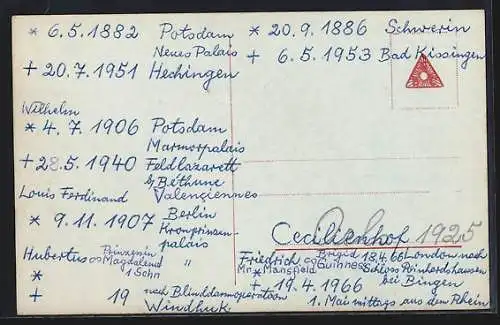 * 6.5.1882 Potsdam
Neues Palais
+ 20.7.1951 Hechingen
* 20.9.1886 Schwerin
+ 6.5.1953 Bad Kissingen
Wilhelm
* 4.7.1906 Potsdam
Marmorpalais
+ 28.5.1940 Feldlazarett
b/ Béthune
Valenciennes
Louis Ferdinand
* 9.11.1907 Berlin
Kronprinzen-
palais
Hubertus ∞ Prinzessin
Magdalena "
1 Sohn
*
+ 19 nach Blinddarmoperation
Windhuk
Cecilienhof 1925
Friedrich ∞ Brigid 18.4.66 London nach
Mr. Mansfield Guinness Schloss Reinhardshausen
* bei Bingen
+ 19.4.1966
1. Mai mittags aus dem Rhein